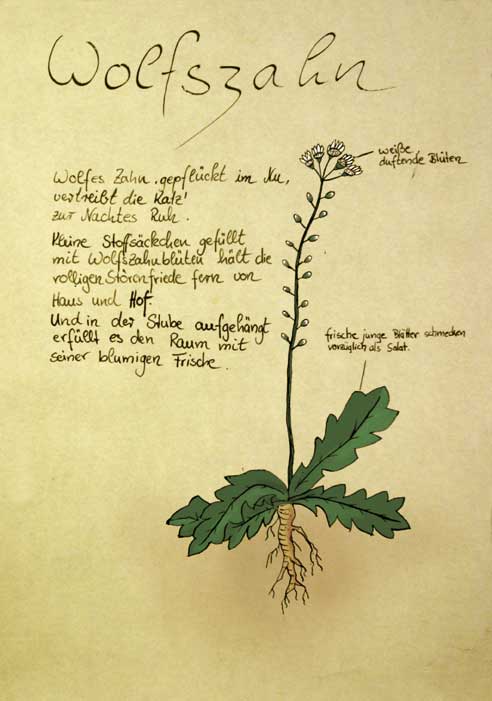 Wolfszahn
weiße
duftende Blüten
Wolfes Zahn, gepflückt im Nu,
vertreibt die Katz'
zur Nachtes Ruh.
Kleine Stoffsäckchen gefüllt
mit Wolfszahnblüten hält die
rolligen Störenfriede fern von
Haus und Hof.
Und in der Stube aufgehängt
erfüllt es den Raum mit
seiner blumigen Frische.
frische junge Blätter schmecken
vorzüglich als Salat.